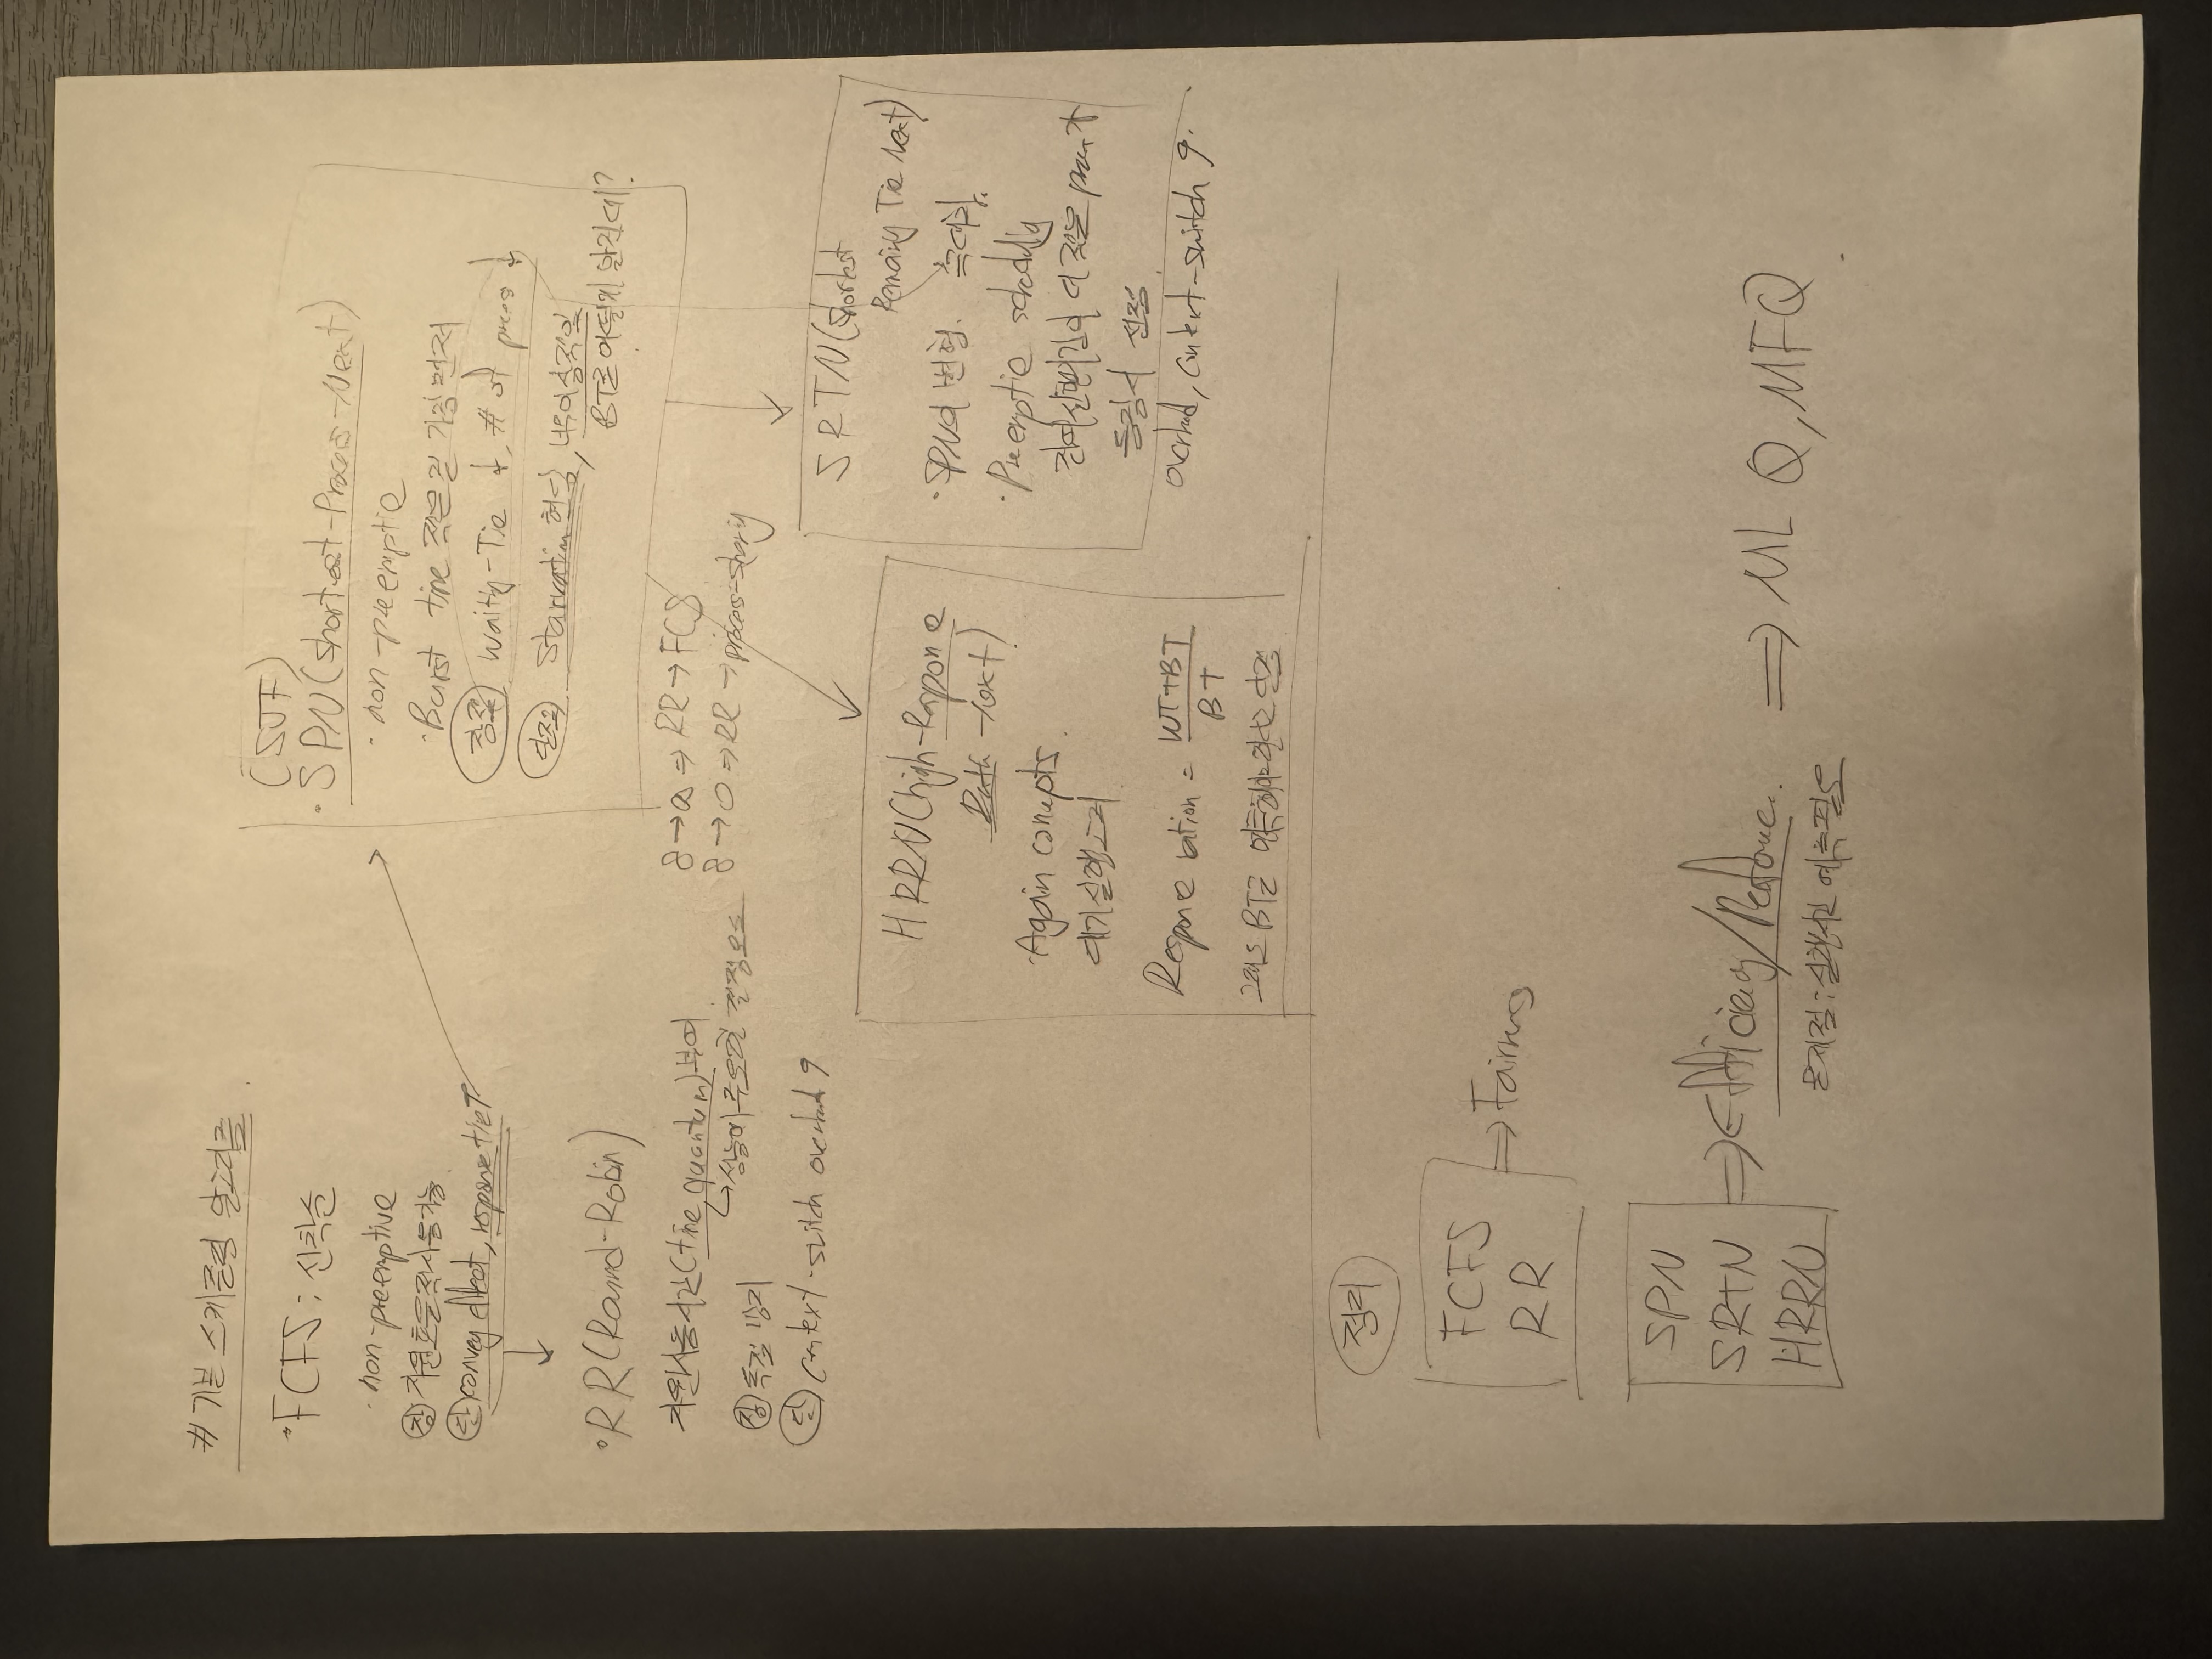 # 기본 스케줄링 알고리즘
·FCFS : 선착순
· non-preemptive
장 자원 효율적 사용 가능
단 convoy effect, response time↑
·RR(Round-Robin)
자원 사용 시간(time quantum) 부여
↳성능에 주요한 결정 요소
장 독점 방지
단 context-switch overhead
(SJF)
·SPN(shortest-Process-Next)
· non-preemptie
·Burst time 작은 걸 가장 먼저
장점 Waiting-Time ↓, # of process ↓
단점 Starvation 현상,
BT를 어떻게 알건데?
8→∞ ⇒ RR→FCS
8→0 ⇒ RR→process-sharing
HRRN(high-Response
-Next)
·Aging concepts
대기 실행 고려
Response ration = WT+BT
BT
그래도 BT를 예측해야 단점
SRTN(shortest
Remaining Time Next)
·SPN의 변형. 극대화.
·Preemptie scheduling
잔여 실행시간이 더 적은 process가
등장시 선점
overhead, context-switch
정리
FCFS
RR
⇒ Fairness
SPN
SRTN
HRRN
⇒ Efficiency/Performance.
문제점 : 실행시간 예측 필요
⇒ MLQ, MFQ